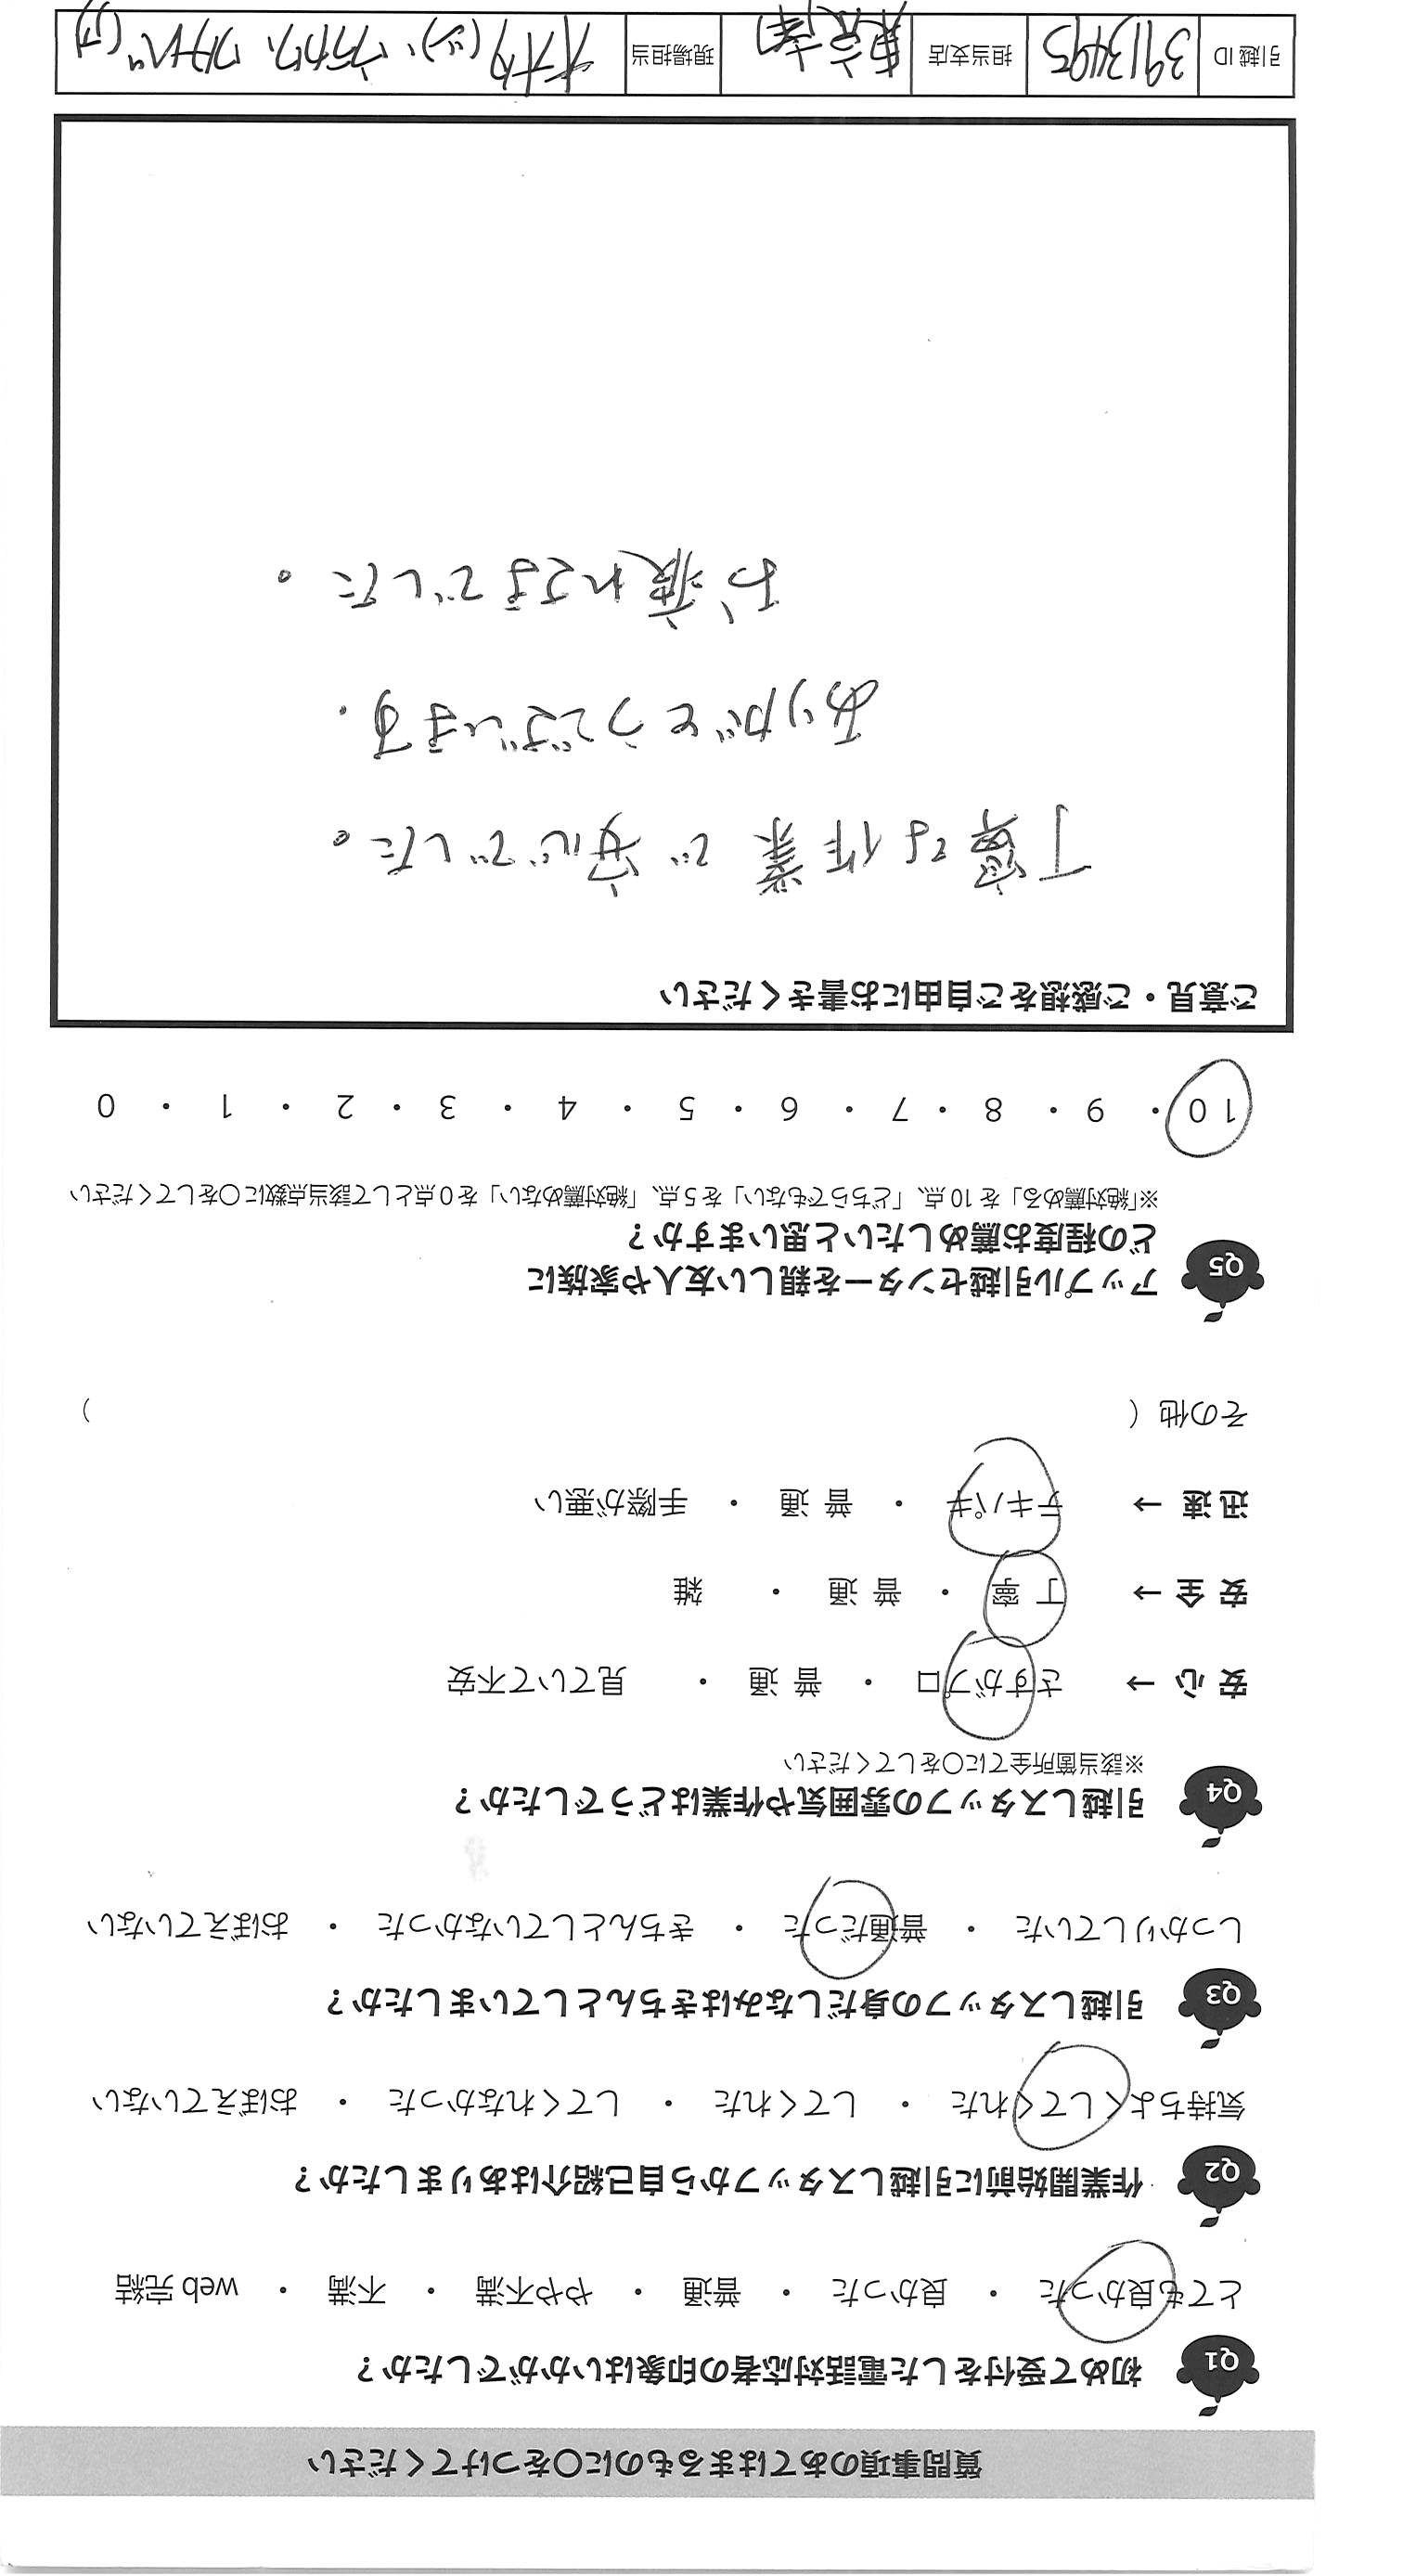 質問事項のあてはまるものに〇をつけてください
Q1 初めて受付をした電話対応者の印象はいかがでしたか？
とても良かった ・ 良かった ・ 普通 ・ やや不満 ・ 不満 ・ web 完結
Q2 作業開始前に引越しスタッフから自己紹介はありましたか？
気持ちよくしてくれた ・ してくれた ・ してくれなかった ・ おぼえていない
Q3 引越しスタッフの身だしなみはきちんとしていましたか？
しっかりしていた ・ 普通だった ・ きちんとしていなかった ・ おぼえていない
Q4 引越しスタッフの雰囲気や作業はどうでしたか？
※該当箇所全てに〇をしてください
安 心 → さすがプロ ・ 普 通 ・ 見ていて不安
安 全 → 丁 寧 ・ 普 通 ・ 雑
迅 速 → テキパキ ・ 普 通 ・ 手際が悪い
その他（ ）
Q5 アップル引越センターを親しい友人や家族に
どの程度お薦めしたいと思いますか？
※「絶対薦める」を 10 点、「どちらでもない」を 5 点、「絶対薦めない」を 0 点として該当点数に〇をしてください
10 ・ 9 ・ 8 ・ 7 ・ 6 ・ 5 ・ 4 ・ 3 ・ 2 ・ 1 ・ 0
ご意見・ご感想をご自由にお書きください
丁寧な作業で安心でした。
ありがとうございます.
お疲れさまでした。
引越 ID 3913495 担当支店 現場担当 オオタ(ツ)、